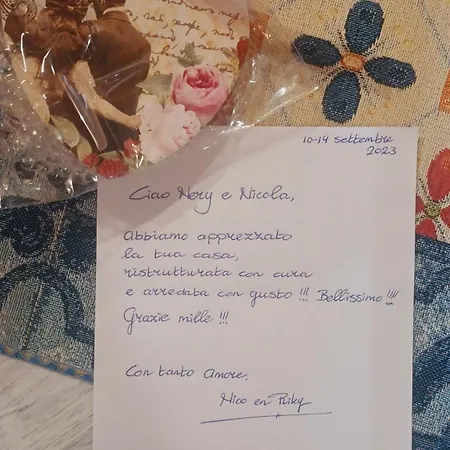 10-14 settembre
2023
Ciao Nory e Nicola,
Abbiamo apprezzato
la tua casa,
ristrutturata con cura
e arredata con gusto !!! Bellissimo !!!!
Grazie mille !!!
Con tanto amore,
Nico en Riky